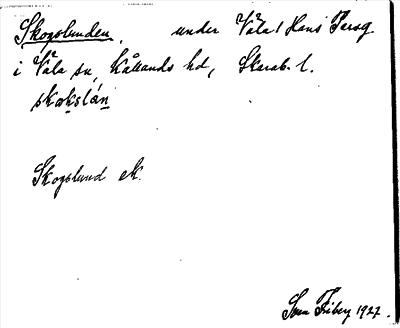 Skogslunden, under Våla 1 Hans Larsg.
i Våla sn, Kållands hd, Skarab. l.
skɷkslán
Skogslund ek.
Sven Friberg 1927.